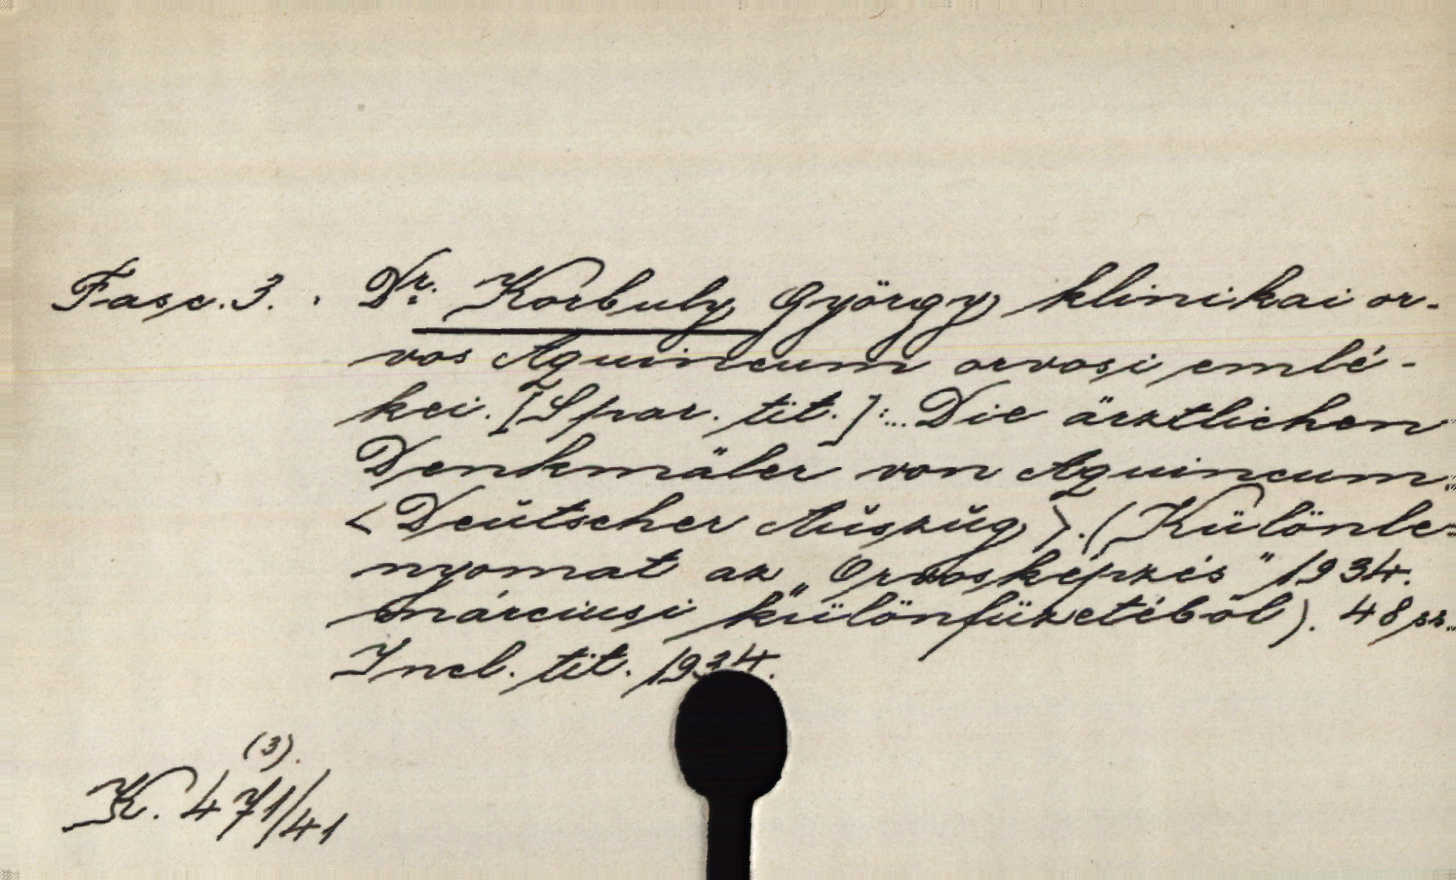 Fasc. 3. . Dr. Korbuly György klinikai or-
vos Aquincum orvosi emlé-
kei. [Spar. tit.]:... Die ärztlichen
Denkmäler von Aquincum...
<Deutscher Auszug>. (Különle-
nyomat az „Orvosképzés" 1934.
márciusi különfüzetéből). 48 sz..
Incl. tit. 1934.
(3).
K. 471/41